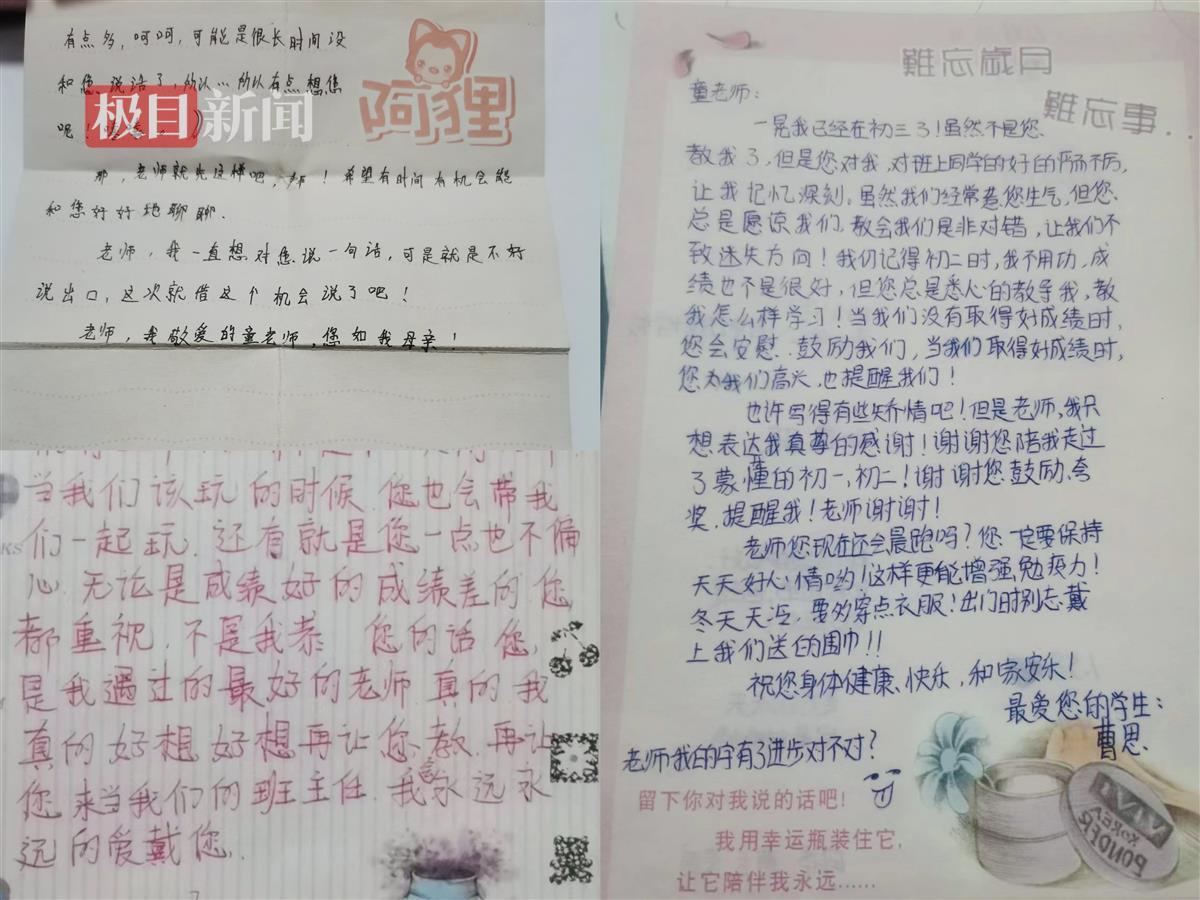 有点多,呵呵,可能是很长时间没
和您说话了,所以…所以有点想您
呢!
极目新闻
阿狸
那,老师就先这样吧,!希望有时间有机会能
和您好好地聊聊.
老师,我一直想对您说一句话,可是就是不好
说出口,这次就借这个机会说了吧!
老师,我敬爱的童老师,您如我母亲!
当我们该玩的时候.您也会带我
们一起玩.还有就是您一点也不偏
心.无论是成绩好的成绩差的.您
都重视.不是我恭 您的话您,
是我遇过的最好的老师.真的.我
真的好想好想再让您教.再让
您来当我们的班主任.我永远永
远的爱戴您.
難忘歲月
難忘事..
童老师:
一晃我已经在初三了!虽然不是您
教我了,但是您对我,对班上同学的好的严而不厉,
让我记忆深刻.虽然我们经常惹您生气,但您
总是愿谅我们.教会我们是非对错,让我们不
致迷失方向!我仍记得初二时,我不用功,成
绩也不是很好,但您总是悉心的教导我,教
我怎么样学习!当我们没有取得好成绩时,
您会安慰.鼓励我们,当我们取得好成绩时,
您为我们高兴,也提醒我们!
也许写得有些矫情吧!但是老师,我只
想表达我真挚的感谢!谢谢您陪我走过
了蒙懂的初一,初二!谢谢您鼓励、夸
奖、提醒我!老师谢谢!
老师您现在还会晨跑吗?您一定要保持
天天好心情哟!这样更能增强免疫力!
冬天天冷,要多穿点衣服!出门时别忘戴
上我们送的围巾!!
祝您身体健康、快乐,和家安乐!
最爱您的学生:
曹思
老师我的字有了进步对不对?
留下你对我说的话吧!
我用幸运瓶装住它,
让它陪伴我永远……